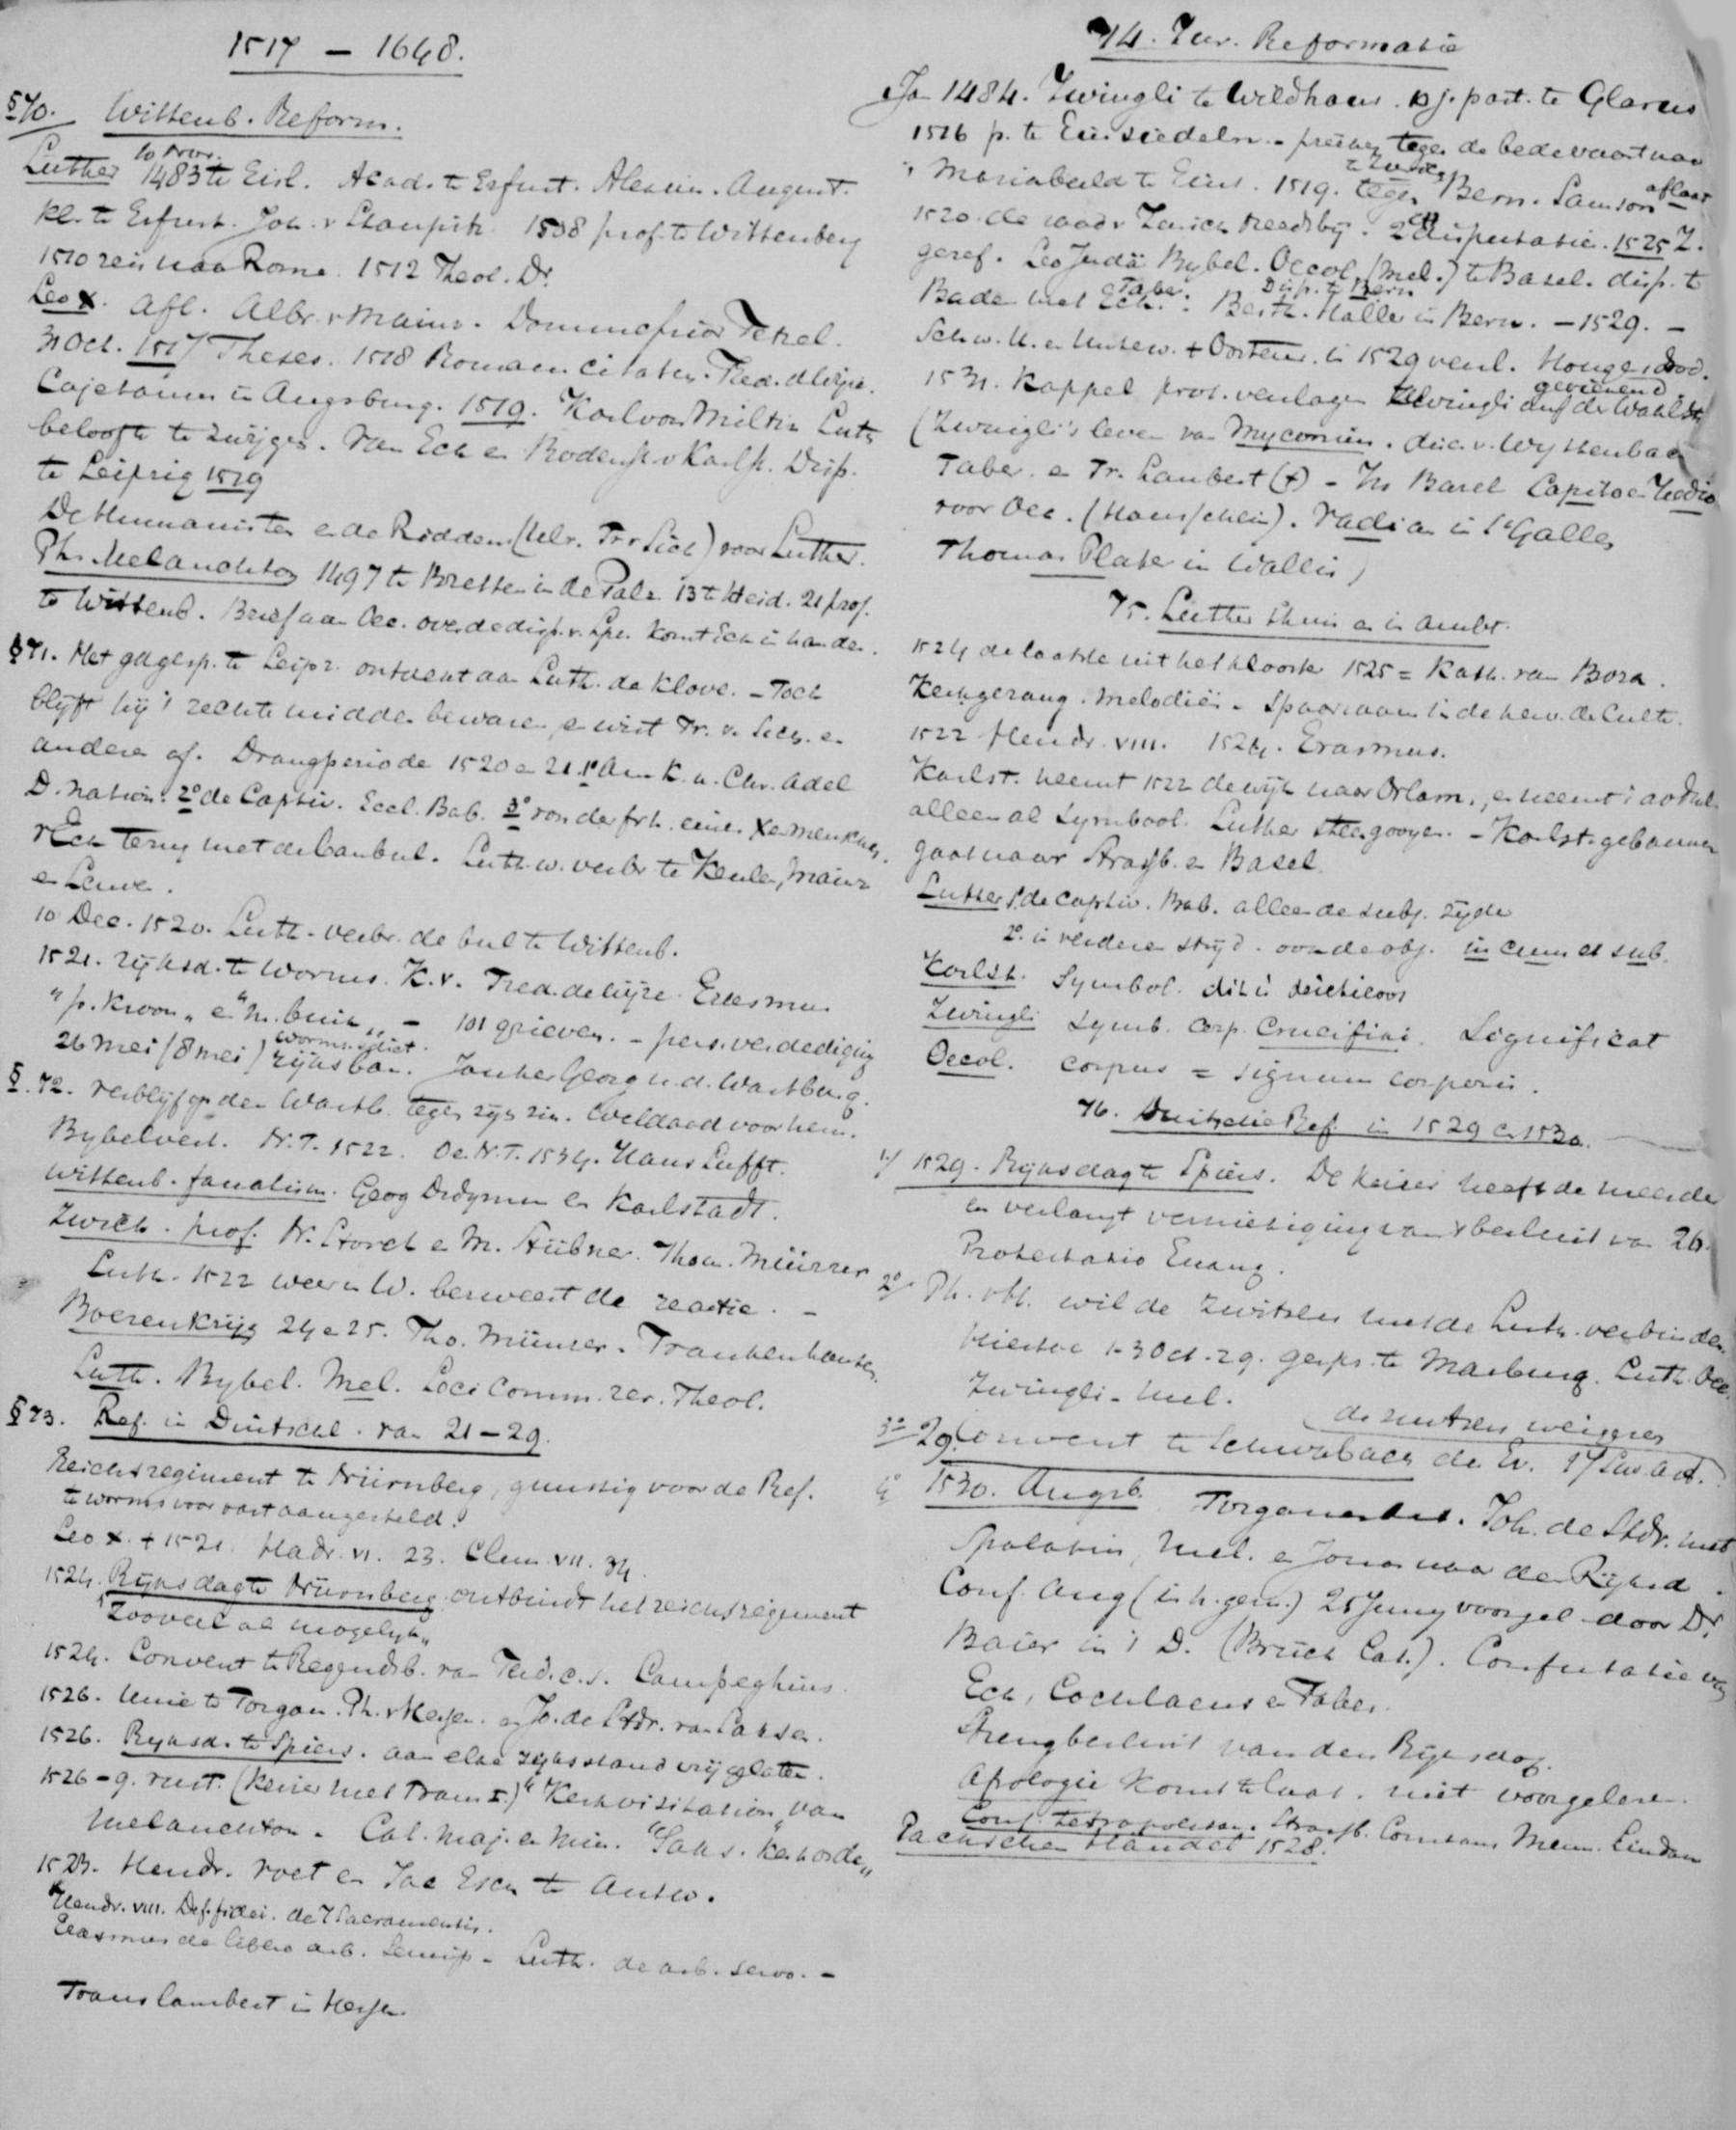 1517 – 1648.
§70. Wittenb. Reform.
10 Nov.
Luther 1483 te Eisl. Acad. te Erfurt. Alexius. August.
kl. te Erfurt. Joh. v Staupitz 1508 prof. te Wittenberg
1510 reis naar Rome. 1512 Theol. Dr.
Leo X. Afl. Albr. v Mainz. Dominic. prior Tetzel.
31 Oct. 1517 Theses. 1518 Romaen citatie. Fred. d Wijze.
Cajetanus in Augsburg. 1519. Karl von Miltiz Luth
beloofde te zwijgen. Van Eck en Bodenst. v Karlst. Disp.
te Leipzig 1519
De Humanisten en de Ridders (Ulr. Fr v Sick) voor Luther.
Ph. Melanchton 1497 te Bretten in de Palz 13 te Heid. 21 prof.
te Wittenb. Brief aan Oec. over de disp. v. Lpz. komt Eck in handen.
§71. Met gdgesp. te Leipz. ontwent aan Luth. de klove. – Toch
blijft hij 't rechte midden bewaren en wist Fr. v. Sick. en
anderen af. Drangperiode 1520 en 21. 1º Am K. u. Chr. Adel
D. nation. 2º de Captiv. Eccl. Bab. 3º von der frh. eines Xenmenschen.
v Eck terug met de banbul. Luth. w. verbr. te Keulen, Mainz
en Leuven.
10 Dec. 1520. Luth. verbr. de bul te Wittenb.
1521. rijksd. te Worms. K. v. Fred. de wijze Erasmus
"p. kroon" en "m. buik" – 101 grieven. – pers. verdediging
Worms. edict.
26 Mei (8 mei) rijksban. Jonker Georg u. d. Wartburg.
§. 72. verblijf op den Wartb. tegen zijn zin. Weldaad voor hem.
Bybelvert. N.T. 1522. O. en N.T. 1534. Hans Lufft.
Wittenb. fanatism. Georg Didymus en Karlstadt.
Zwick. prof. N. Storch en M. Stübner. Thom. Münzer
Luth. 1522 weer in W. bezweert de reactie. –
Boerenkrijg 24 en 25. Tho. Münzer. Frankenhausen.
Luth. Bybel. Mel. Loci Comm. rer. Theol.
§73. Ref. in Duitschl. van 21 – 29.
Reichsregiment te Nürnberg, gunstig voor de Ref.
te worms voor vast aangesteld.
Leo X. + 1521. Hadr. VI. 23. Clem. VII. 34.
1524. Rijksdag te Nürnberg ontbindt het reichsregiment
"Zooveel als mogelijk"
1524. Convent te Regensb. van Ferd. c.s. Campeghius.
1526. Unie te Torgau. Ph. v Hessen en Jo. de Stdr. van Saksen.
1526. Rijksd. te Spiers. aan elke rijksstand vrijgelaten.
1526 – 9. rust. (keizer met Frans I.) "Kerkvisitation" van
Melanchton. Cat. maj. en min. "Saks. kerkorde"
1523. Hendr. Voet en Jac Esch te Antw.
Hendr. VIII. Def. fidei. de 7 Sacramentis.
Erasmus de libero arb. – Luth. de arb. servo. –
Frans Lambert in Hessen.
74. Zur. Reformatie
1 Jan 1484. Zwingli te Wildhaus. 10 j. past. te Glarus
1516 p. te Einsiedeln. – preken tegen de bedevaart naar
't Mariabeeld te Eins. 1519. te Zurich tegen Bern. Samson aflaat
1520 de raad v Zurich treedt bij. 2 disputatie. 1525 Z.
geref. Leo Judä Bybel. Oecol. (Mel.) te Basel. disp. te
Baden met Eck. Faber. Disp. te Bern Berth. Haller in Bern. – 1529. –
Schw. U. en Unterw. + Oostenr. in 1529 verb. Hongersnood.
1531. Kappel prot. verslagen Zwingli auf der Wahlst. gevierend
(Zwingli's leven van Myconius. disc. v. Wyttenbach
Faber. en Fr. Lambert (+) – In Basel Capito en Hedio
voor Oec. (Hausschein). Vadian in St Gallen
Thomas Plater in Wallis)
75. Luther thuis en in ambt.
1524 de laatste uit het klooster 1525 = Kath. van Bora.
Kerkgezang. Melodiën. Spaarzaam in de herv. de Cult.
1522 Hendr. VIII. 1524. Erasmus.
Karlst. neemt 1522 de wijk naar Orlam., en neemt 't avdml.
alleen als Symbool. Luther steengooyen. – Karlst. gebannen
gaat naar Strasb. en Basel.
Luther 1º. de captiv. Bab. alleen de subj. zijde
2º. in verderen strijd. ook de obj. in cum et sub.
Karlst. Symbol. dit is δεικτικως
Zwingli Symb. corp. Crucifixi. Significat
Oecol. corpus = signum corporis.
76. Duitsche Ref. in 1529 en 1530.
1º/ 1529. Rijksdag te Spiers. De keizer heeft de meerderh
en verlangt vernietiging van 't besluit van 26.
Protestatio Evang.
2º/ Ph. v H. wil de Zwitsers met de Luth. verbinden.
hiertoe 1-3 Oct. 29. gespr. te Marburg. Luth. Oec.
Zwingli – Mel.
3º 29. Convent te Schwabach de Ev. 17 Sw. Art. (de Zwitsers weigeren
4º 1530. Augsb. Torgau Art. Joh. de Stdr. met
Spalatin, Mel. en Jonas naar den Rijksd.
Conf. Aug (in h. gem.) 25 Juny voorgel. door Dr.
Baier in 't D. (Brück Lat.). Confutatie van
Eck, Cochlaeus en Faber.
Streng besluit van den Rijksdag.
Apologie komt te laat. niet voorgelezen.
Conf. Tetrapolitan. Strasb. Constanz Memm. Lindau
Packschen Handel 1528.